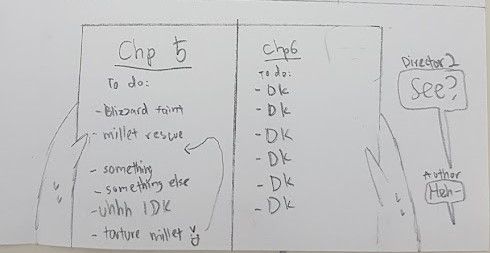 Chp 5
To do:
-Blizzard faint
- millet rescue
- something
- something else
-uhhh IDK
- torture millet
Chp6
To do:
- DK
- DK
- DK
- DK
- DK
- DK
Director 2
See?
Author
Heh~